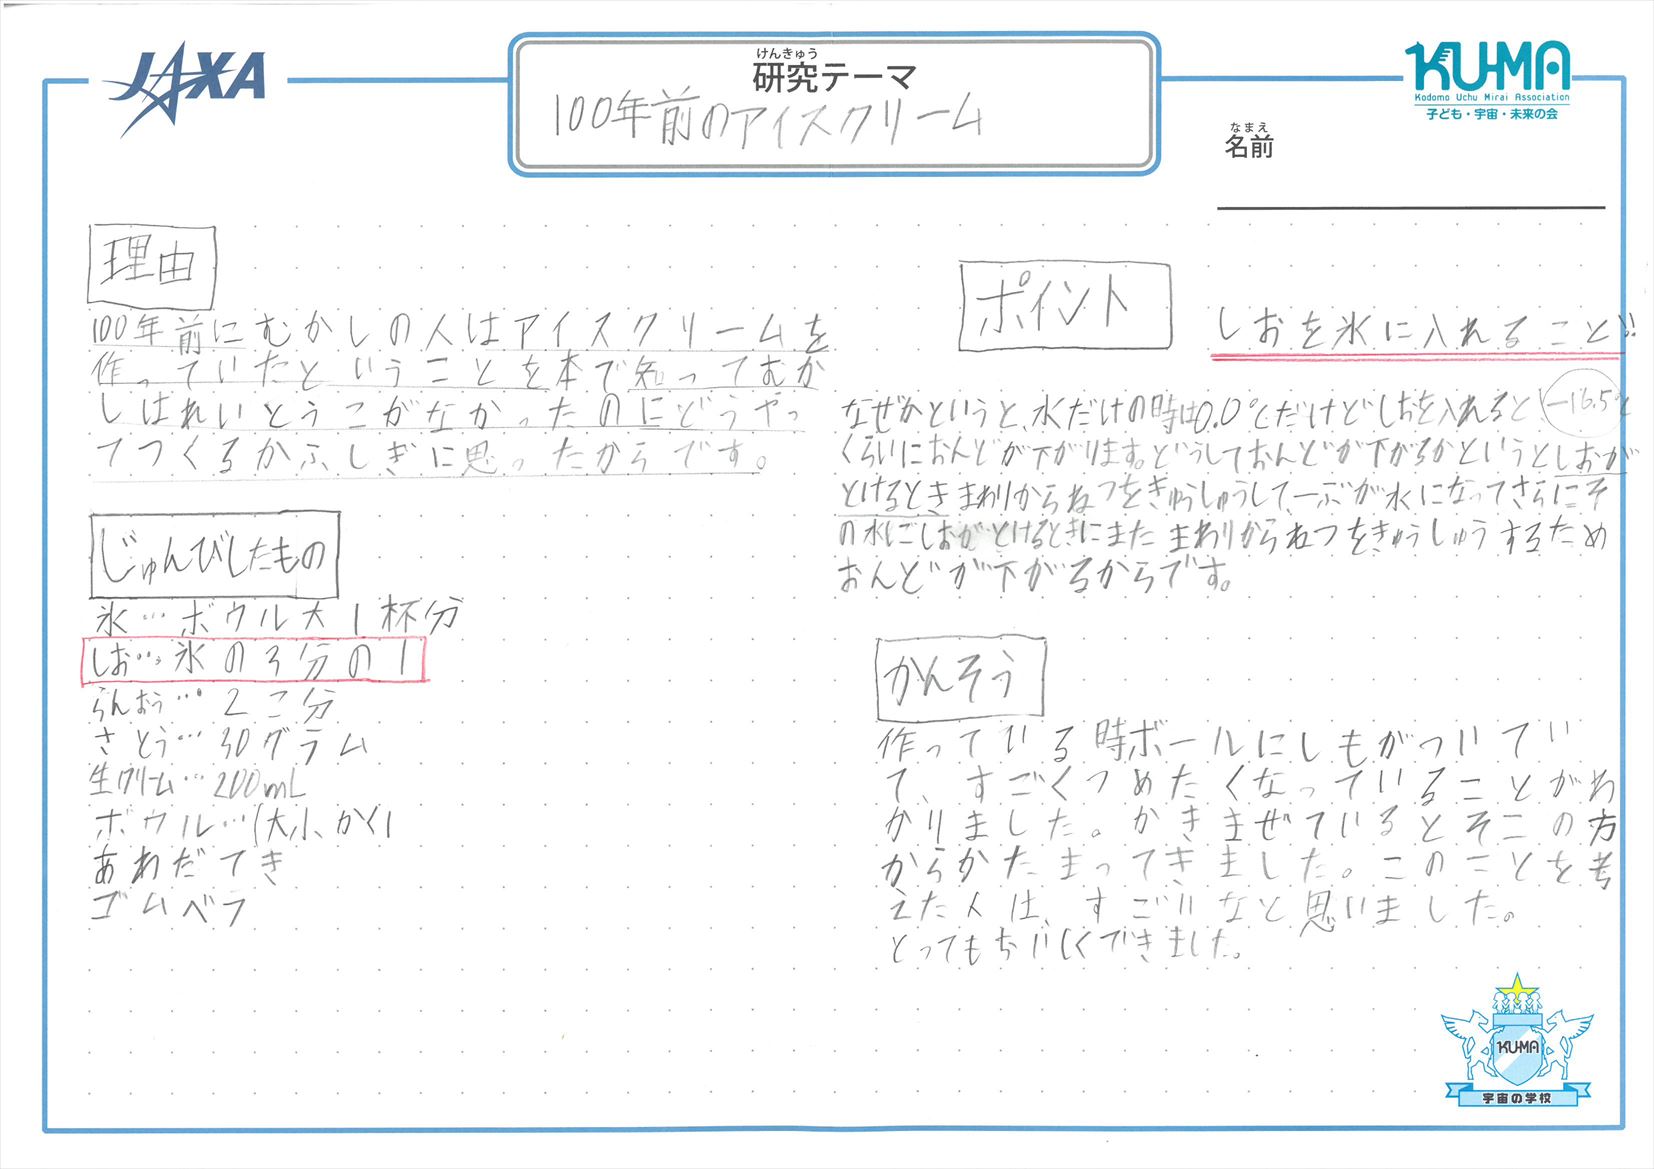 JAXA
けんきゅう
研究テーマ
100年前のアイスクリーム
KU-MA
Kodomo Uchu Mirai Association
子ども・宇宙・未来の会
なまえ
名前
理由
100年前にむかしの人はアイスクリームを
作っていたということを本で知ってむか
しはれいとうこがなかったのにどうやっ
てつくるかふしぎに思ったからです。
じゅんびしたもの
氷…ボウル大1杯分
しお…氷の3分の1
らんおう…2こ分
さとう…30グラム
生クリーム…200mL
ボウル…(大小、かく1
あわだてき
ゴムベラ
ポイント
しおを氷に入れること!!
なぜかというと、氷だけの時は0.0℃だけどしおを入れると-16.5℃
くらいにおんどが下がります。どうしておんどが下がるかというとしおが
とけるときまわりからねつをきゅうしゅうして、一ぶが水になってさらにそ
の水にしおがとけるときにまたまわりからねつをきゅうしゅうするため
おんどが下がるからです。
かんそう
作っている時ボールにしもがついてい
て、すごくつめたくなっていることがわ
かりました。かきまぜているとそこの方
からかたまってきました。このことを考
えた人は、すごいなと思いました。
とってもおいしくできました。
KU-MA
宇宙の学校